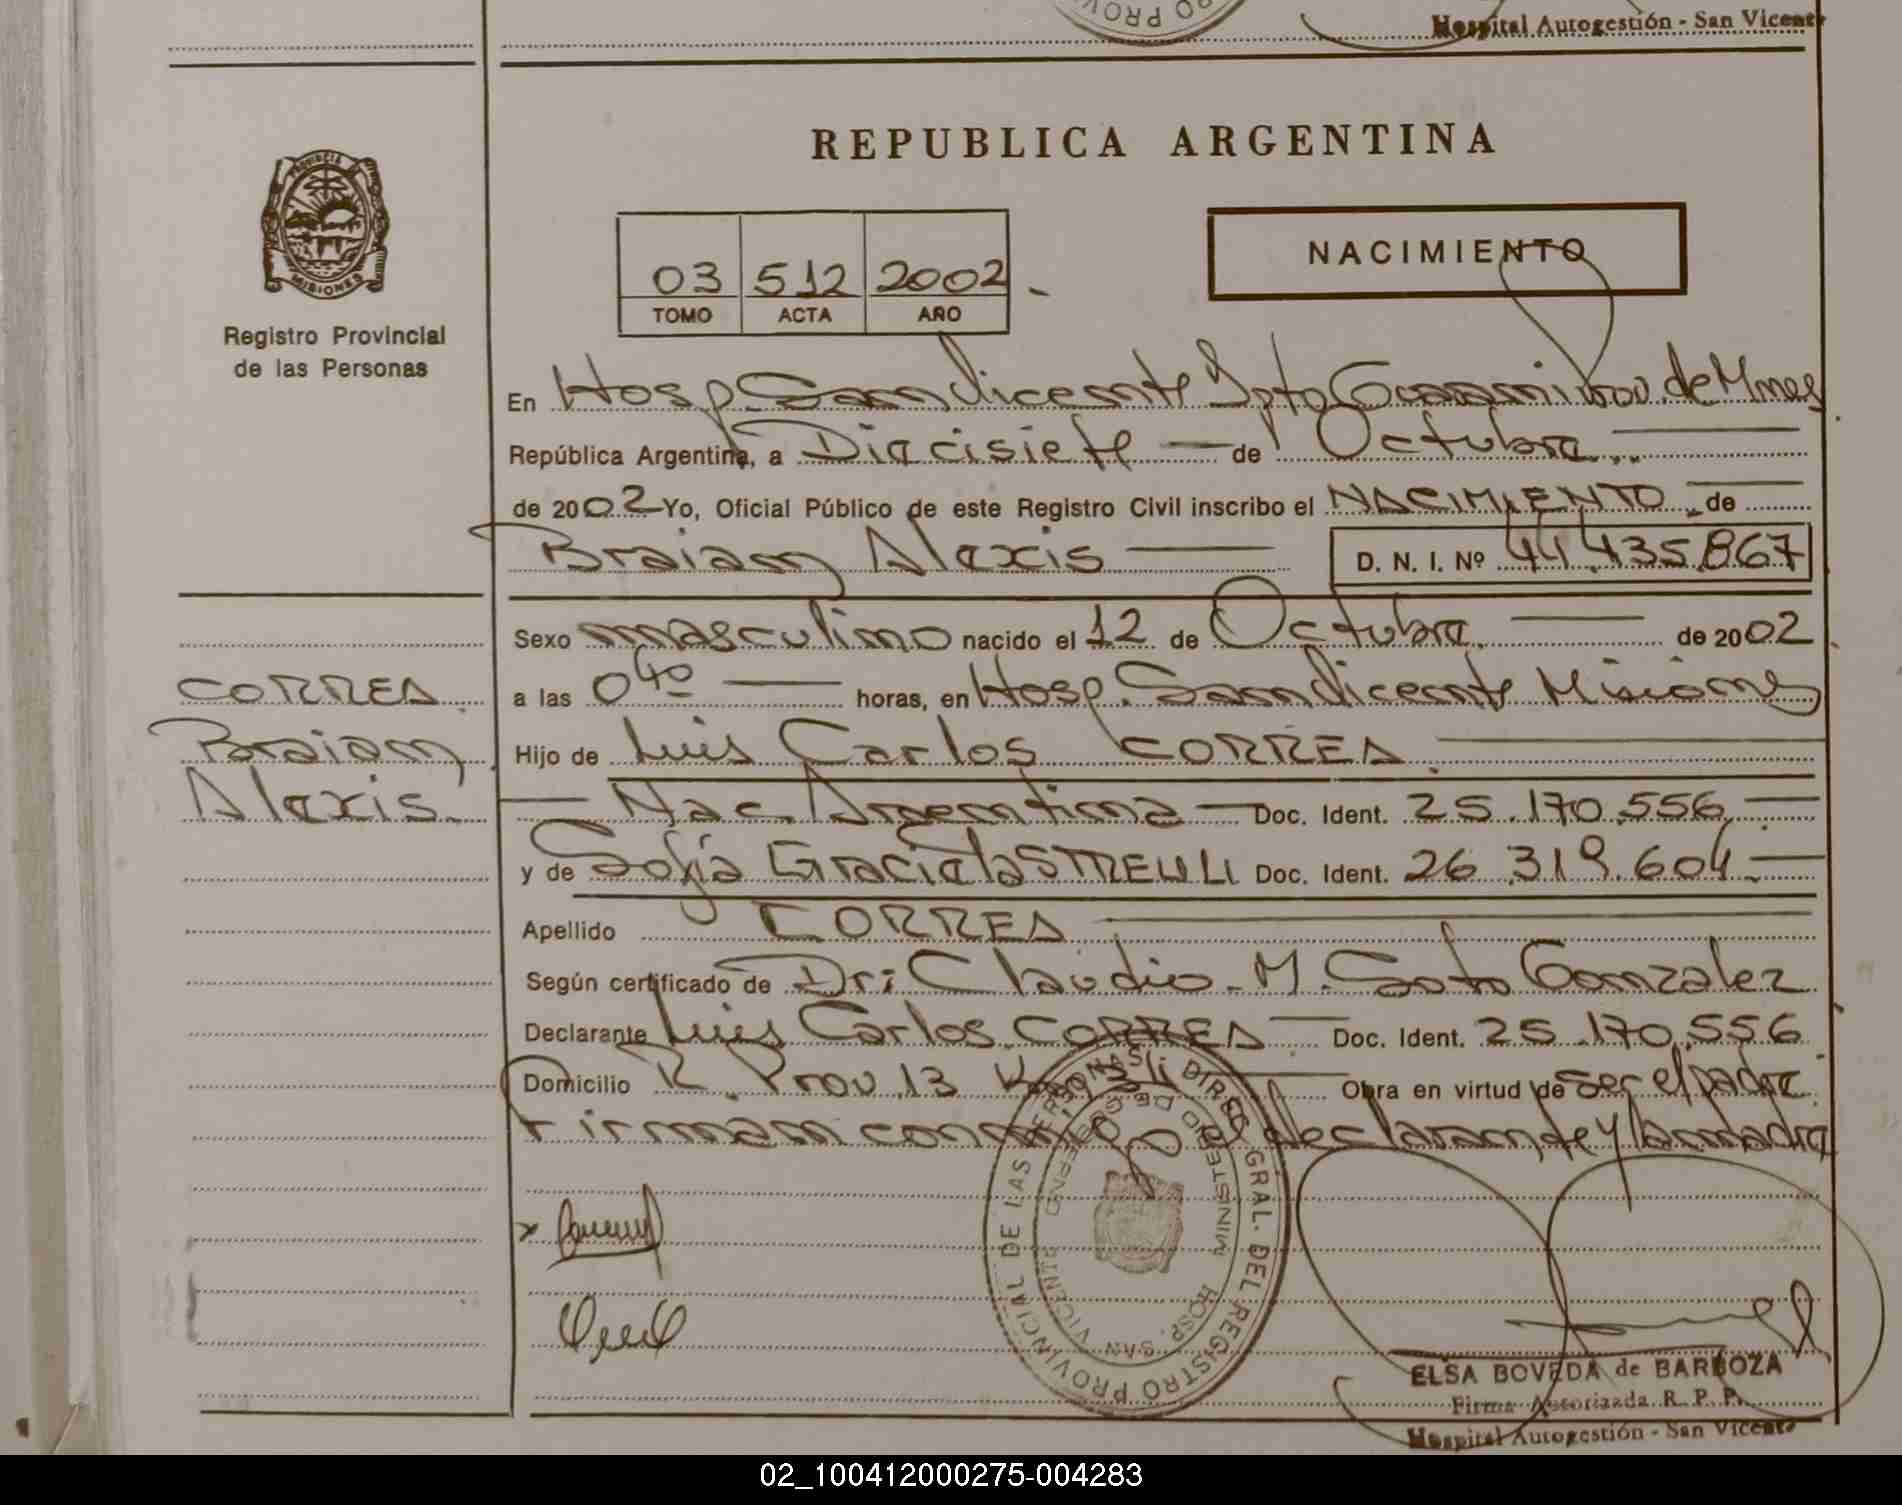 Hospital Autogestión - San Vicente
REPUBLICA ARGENTINA
PROVINCIA
MISIONES
Registro Provincial
de las Personas
NACIMIENTO
03 512 2002
TOMO ACTA AÑO
En Hosp. San Vicente Dpto Guaraní Prov. de Mnes
República Argentina, a Diecisiete de Octubre
de 2002 Yo, Oficial Público de este Registro Civil inscribo el NACIMIENTO de
Braian Alexis D. N. I. Nº 44.435.867
Sexo masculino nacido el 12 de Octubre de 2002
a las 0⁴⁰ horas, en Hosp. San Vicente Misiones
Hijo de Luis Carlos CORREA
Nac. Argentina Doc. Ident. 25.170.556
y de Sofía Graciela STREULI Doc. Ident. 26.319.604
Apellido CORREA
Según certificado de Dr: Claudio M. Soto Gonzalez
Declarante Luis Carlos CORREA Doc. Ident. 25.170.556
Domicilio R. Prov. 13 Obra en virtud de ser el padre
Firman conmigo el declarante y la madre
CORREA
Braian
Alexis
REGISTRO PROVINCIAL DE LAS PERSONAS DIREC. GRAL. DEL
MINISTERIO DE GOBIERNO
HOSP. SAN VICENTE
ELSA BOVEDA de BARBOZA
Firma Autorizada R. P. P.
Hospital Autogestión - San Vicente
02_100412000275-004283